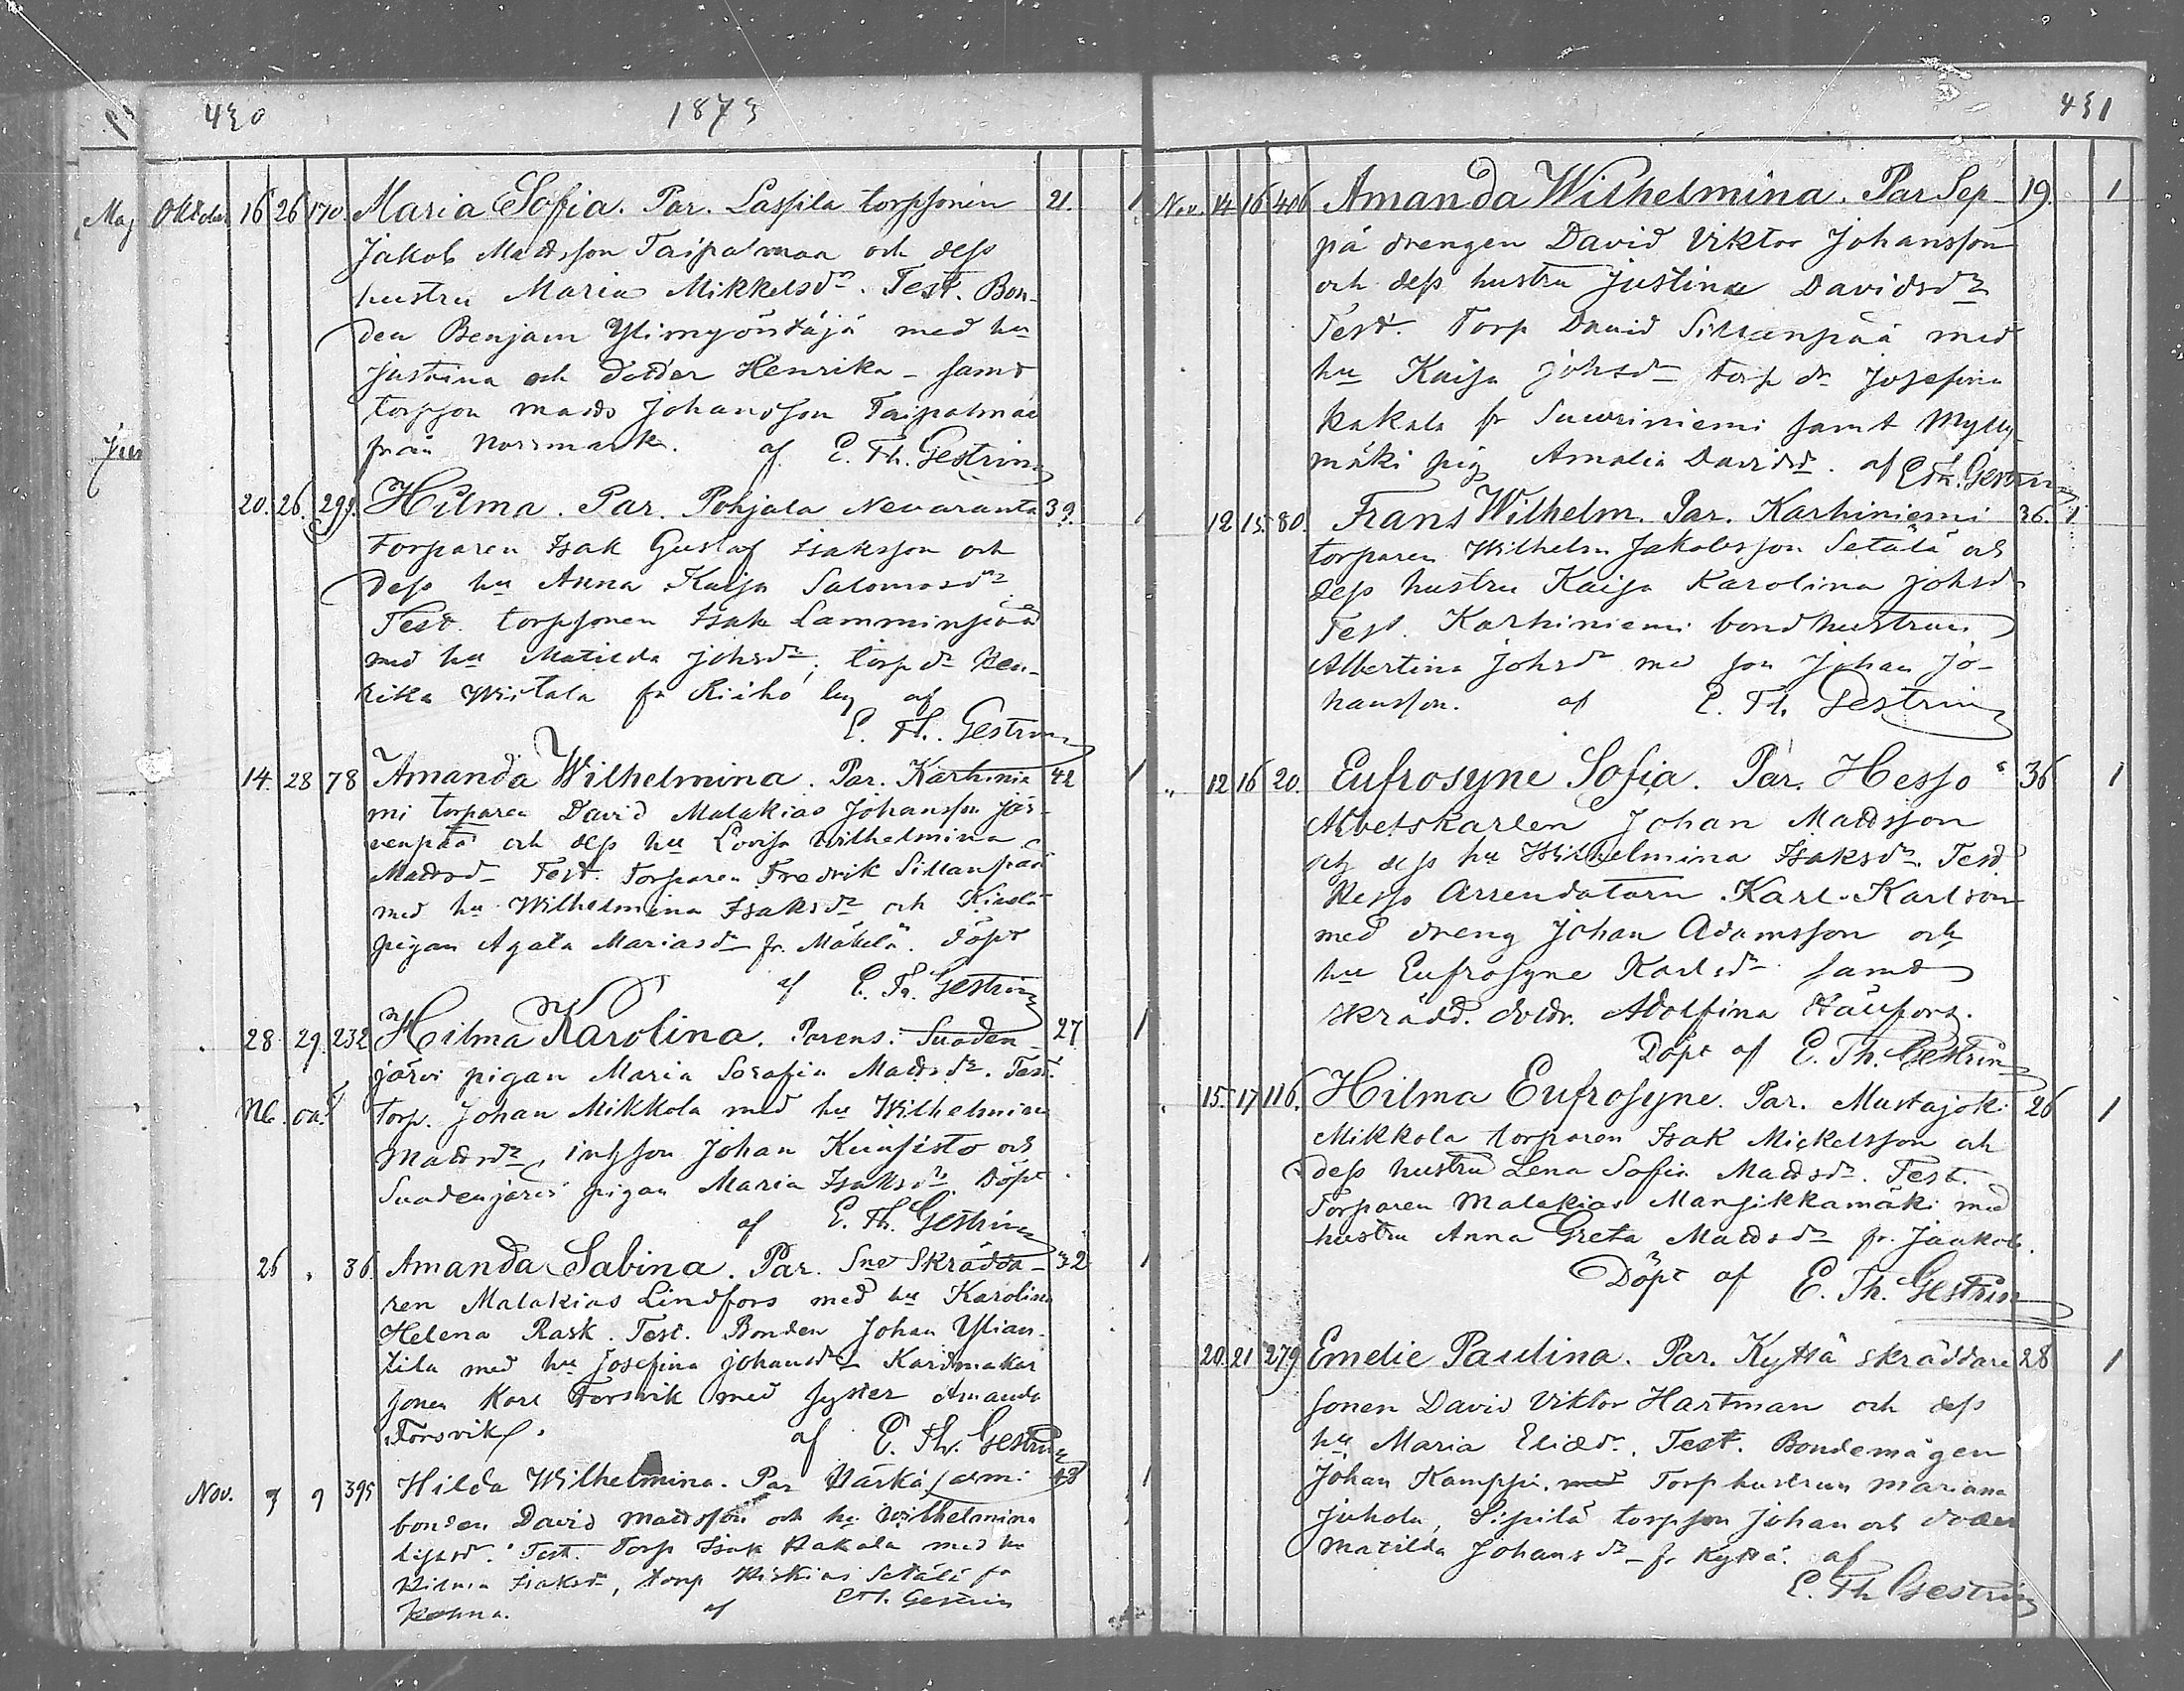 430
1873
Maj Oktober 16 26 170 Maria Sofia. Par. Lassila torpsonen 21. 1
Jakob Mattsson Taipalmaa och dess
hustru Maria Mikkelsdr. Test. Bon-
den Benjam Ylimyöntäjä med hu
Justina och dotter Henrika - samt
torpson Matts Johansson Taipalmaa
från Norrmark. af E. Th. Gestrin
20. 26. 299. Hilma. Par. Pohjala Nevaranta 39. 1
torparen Isak Gustaf Isaksson och
dess hu Anna Kaisa Salomonsdr.
Test. torpsonen Isak Lamminpää
med hu Matilda Johsdr, torp dr Hen-
rika Wistala fr Riiho by af
E. Th. Gestrin
14. 28 78 Amanda Wilhelmina. Par. Karhinie 42 1
mi torparen David Malakias Johansson Jär-
venpää och dess hu Lovisa Wilhelmina
Mattsdr Test. Torparen Fredrik Sillanpää
med hu Wilhelmina Isaksdr och
pigan Agata Mariasdr fr. Mäkelä. Döpt
af E. Th. Gestrin
28. 29. 232 Hilma Karolina. Parens: Suoden- 27 1
järvi pigan Maria Serafia Mattsdr. Test.
Nb. oä. torp. Johan Mikkola med hu Wilhelmina
Mattsdr, inhson Johan Kuusisto och
Suodenjärvi pigan Maria Isaksdr. Döpt
af E. Th. Gestrin
26 " 36 Amanda Sabina. Par. Skrädda- 32 1
ren Malakias Lindfors med hu Karolina
Helena Rask. Test. Bonden Johan Ylian-
tila med hu Josefina Johansdr Kardmakar
sonen Karl Forsvik med syster Amanda
Forsvik. af E. Th. Gestrin
Nov. 3 9 395 Hilda Wilhelmina. Par 48 1
bonden David Mattsson och hu Wilhelmina
Test. Torp Isak Kakala med hu
Isaksdr, torp Hiskias Setälä fr
af E. Th. Gestrin
431
Nov. 14 16 406 Amanda Wilhelmina. Par Sep- 19. 1
pä drengen David Viktor Johansson
och dess hustru Justina Davidsdr
Test. Torp David Sillanpää med
hu Kaisa Johsdr torp dr Josefina
Kakala fr Suuriniemi samt Mylly-
mäki pig Amalia Davidsd. af E. Th. Gestrin
12 15 80. Frans Wilhelm. Par. Karhiniemi 36. 1
torparen Wilhelm Jakobsson Setälä och
dess hustru Kaisa Karolina Johsd
Test. Karhiniemi bondhustrun
Albertina Johsdr med son Johan Jo-
hansson. af E. Th. Gestrin
" 12 16 20. Eufrosyne Sofia. Par. Hesso 36 1
Arbetskarlen Johan Mattsson
och dess hu Wilhelmina Isaksdr. Test
Hesso Arrendatorn Karl Karlsson
med dreng Johan Adamsson och
hu Eufrosyne Karlsdr samt
skrädd. dotdr. Adolfina
Döpt af E. Th. Gestrin
" 15. 17 116. Hilma Eufrosyne. Par. Mustajok 26 1
Mikkola torparen Isak Mickelsson och
dess hustru Lena Sofia Mattsdr. Test.
Torparen Malakias Mansikkamäki med
hustru Anna Greta Mattsdr fr. Jaakola.
Döpt af E. Th. Gestrin
20. 21 279 Emelie Paulina. Par. Kyttä skräddare 28 1
sonen David Viktor Hartman och dess
hu Maria Eliædr. Test. Bondemågen
Johan Kamppi. med Torphustrun Mariana
Juhola, Sipilä torpson Johan och dotter
Matilda Johansdr fr Kyttä. af
E. Th Gestrin